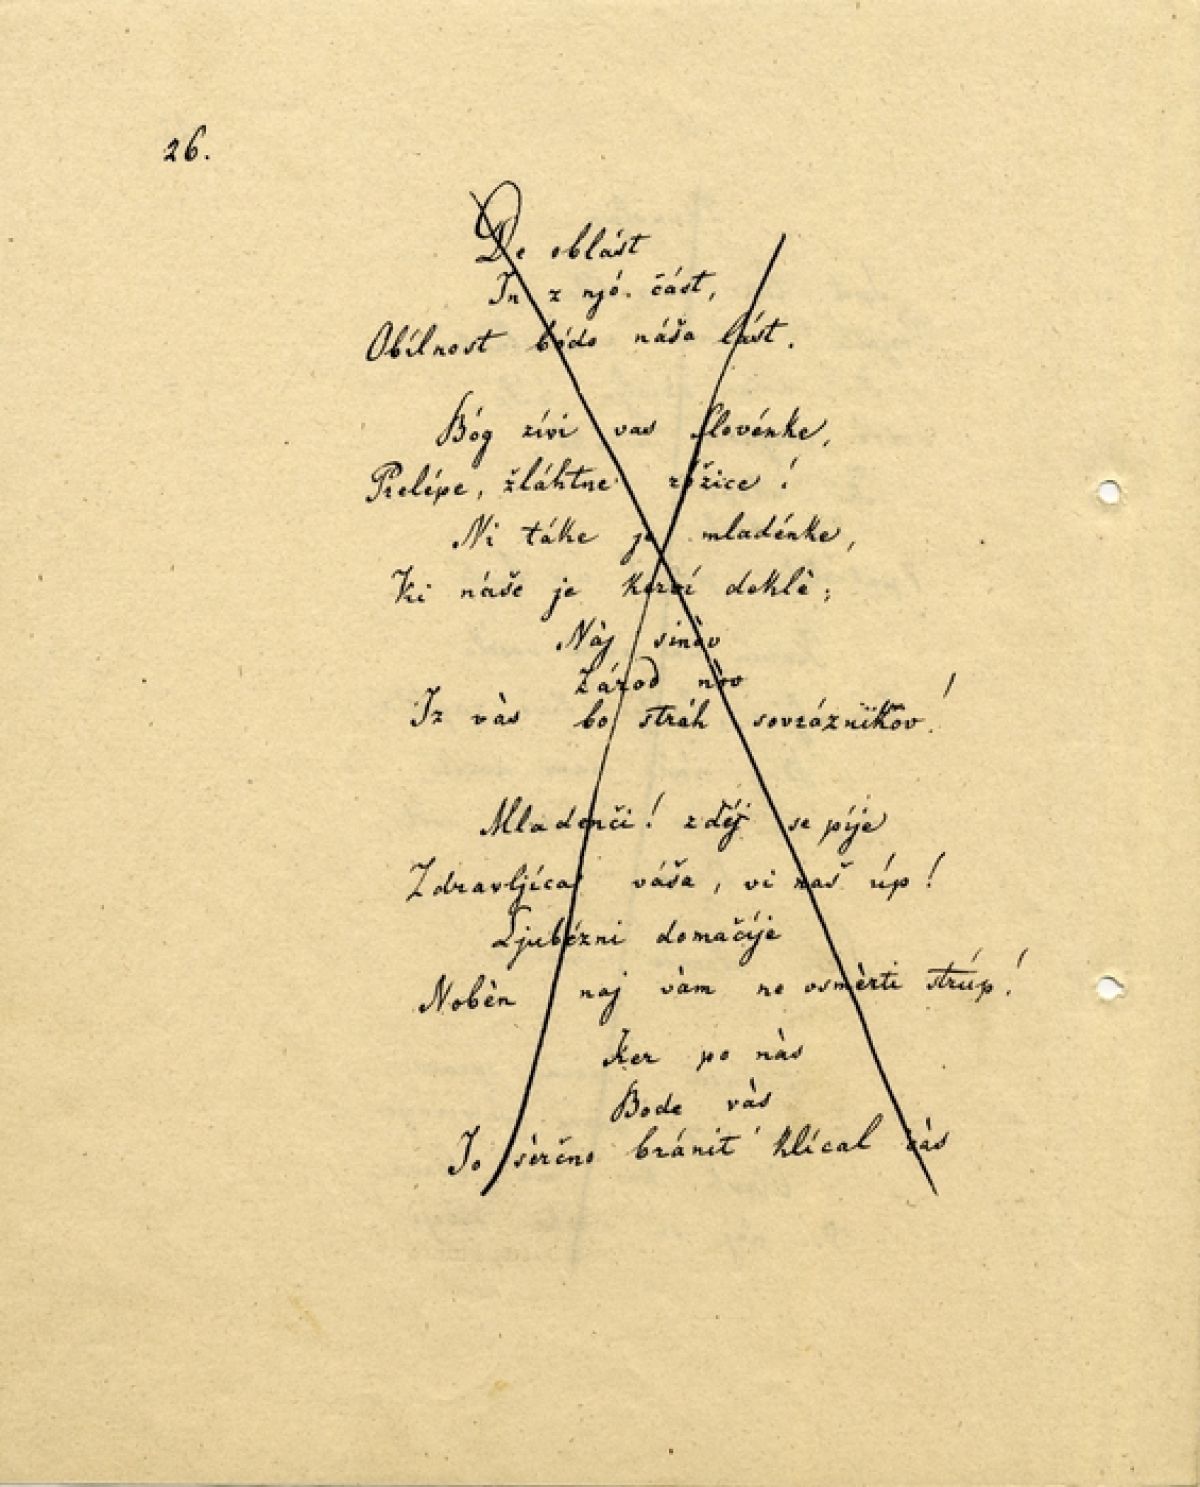 26.
De oblást
In z njó. část,
Obílnost bódo náša lást.
Bóg živi vas Slovénke,
Prelépe, žláhtne róžice!
Ni táke je mladénke,
Ki náše je kerví deklè;
Nàj sinòv
Zárod nòv
Iz vàs bo stráh sovrážnikov!
Mladenči! zdéj se píje
Zdravljíca váša, vi naš úp!
Ljubézni domačíje
Nobèn naj vàm ne vsmèrti strúp!
Ker po nàs
Bode vàs
Jo sèrčno bránit' klícal čàs